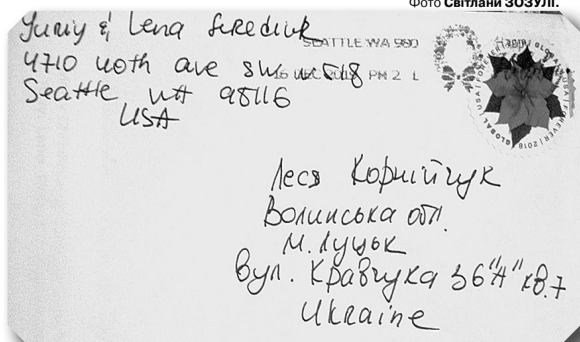 Фото Світлани ЗОЗУЛІ.
Yuriy & Lena
4710 40th ave SW
Seattle WA 98116
USA
SEATTLE WA 980
16 DEC 2019 PM 2 L
GLOBAL USA FOREVER 2018
Леся Корнійчук
Волинська обл.
м. Луцьк
вул. Кравчука 36"А" кв.7
Ukraine